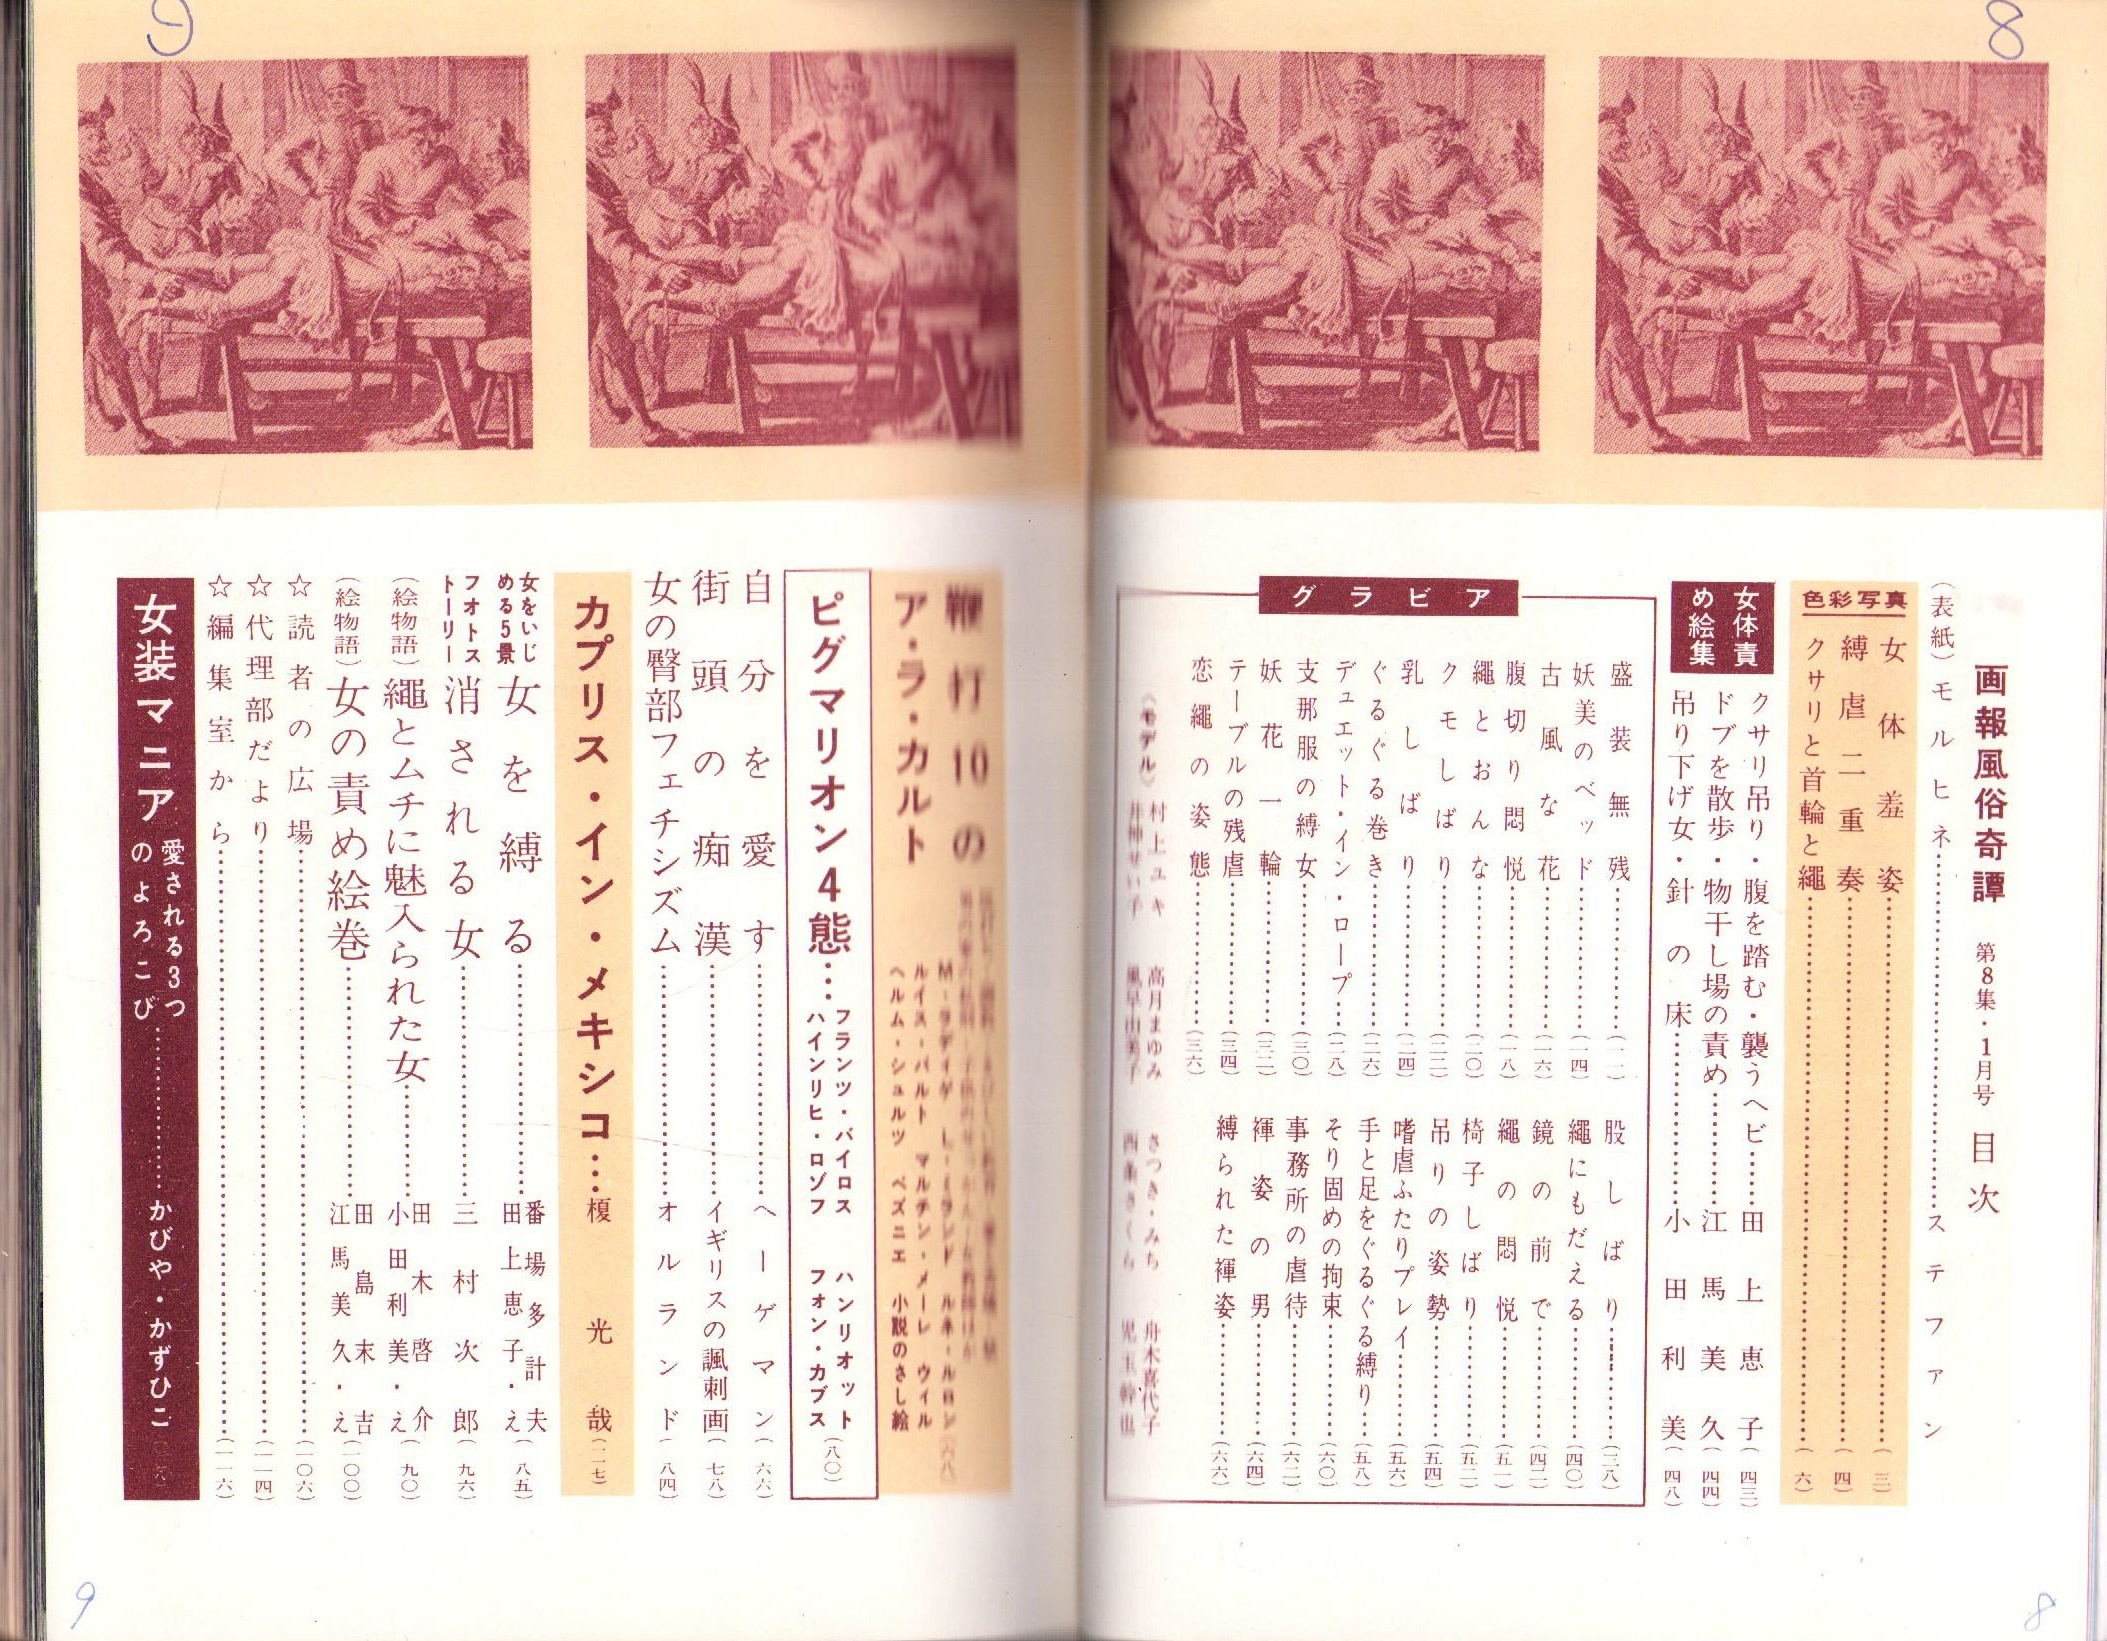 8
9
画報風俗奇譚 第8集・1月号 目次
(表紙) モルヒネ……ステファン
色彩写真
女体羞姿……(三)
縛虐二重奏……(四)
クサリと首輪と繩……(六)
女体責め絵集
クサリ吊り・腹を踏む・襲うヘビ……田上恵子(四三)
ドブを散歩・物干し場の責め……江馬美久(四四)
吊り下げ女・針の床……小田利美(四八)
グラビア
盛装無残……(一一)
妖美のベッド……(一四)
古風な花……(一六)
腹切り悶悦……(一八)
繩とおんな……(二〇)
クモしばり……(二二)
乳しばり……(二四)
ぐるぐる巻き……(二六)
デュエット・イン・ロープ……(二八)
支那服の縛女……(三〇)
妖花一輪……(三二)
テーブルの残虐……(三四)
恋繩の姿態……(三六)
股しばり……(三八)
繩にもだえる……(四〇)
鏡の前で……(四二)
繩の悶悦……(五一)
椅子しばり……(五二)
吊りの姿勢……(五四)
嗜虐ふたりプレイ……(五六)
手と足をぐるぐる縛り……(五八)
そり固めの拘束……(六〇)
事務所の虐待……(六二)
褌姿の男……(六四)
縛られた褌姿……(六六)
(モデル) 村上ユキ 高月まゆみ さつき・みち 舟木喜代子
井神せい子 風早由美子 西条さくら 児玉幹也
鞭打10のア・ラ・カルト
M-ラディゲ L-ミランド ルネ・ルロン(六八)
ルイス・バルト マルチン・メーレ ウイルヘルム・シュルツ ベズニエ 小説のさし絵
ピグマリオン4態…
フランツ・バイロス ハンリオット
ハインリヒ・ロゾフ フォン・カブス(八〇)
自分を愛す……ヘーゲマン(六六)
街頭の痴漢……イギリスの諷刺画(七八)
女の臀部フェチシズム……オルランド(八四)
カプリス・イン・メキシコ…榎光哉(二七)
女をいじめる5景 女を縛る……番場多計夫 田上恵子・え(八五)
フオトストーリー 消される女……三村次郎(九六)
(絵物語) 繩とムチに魅入られた女……田木啓介 小田利美・え(九〇)
(絵物語) 女の責め絵巻……田島末吉 江馬美久・え(一〇〇)
☆読者の広場……(一〇六)
☆代理部だより……(一一四)
☆編集室から……(一一六)
女装マニア 愛される3つのよろこび……かびや・かずひこ
8
9